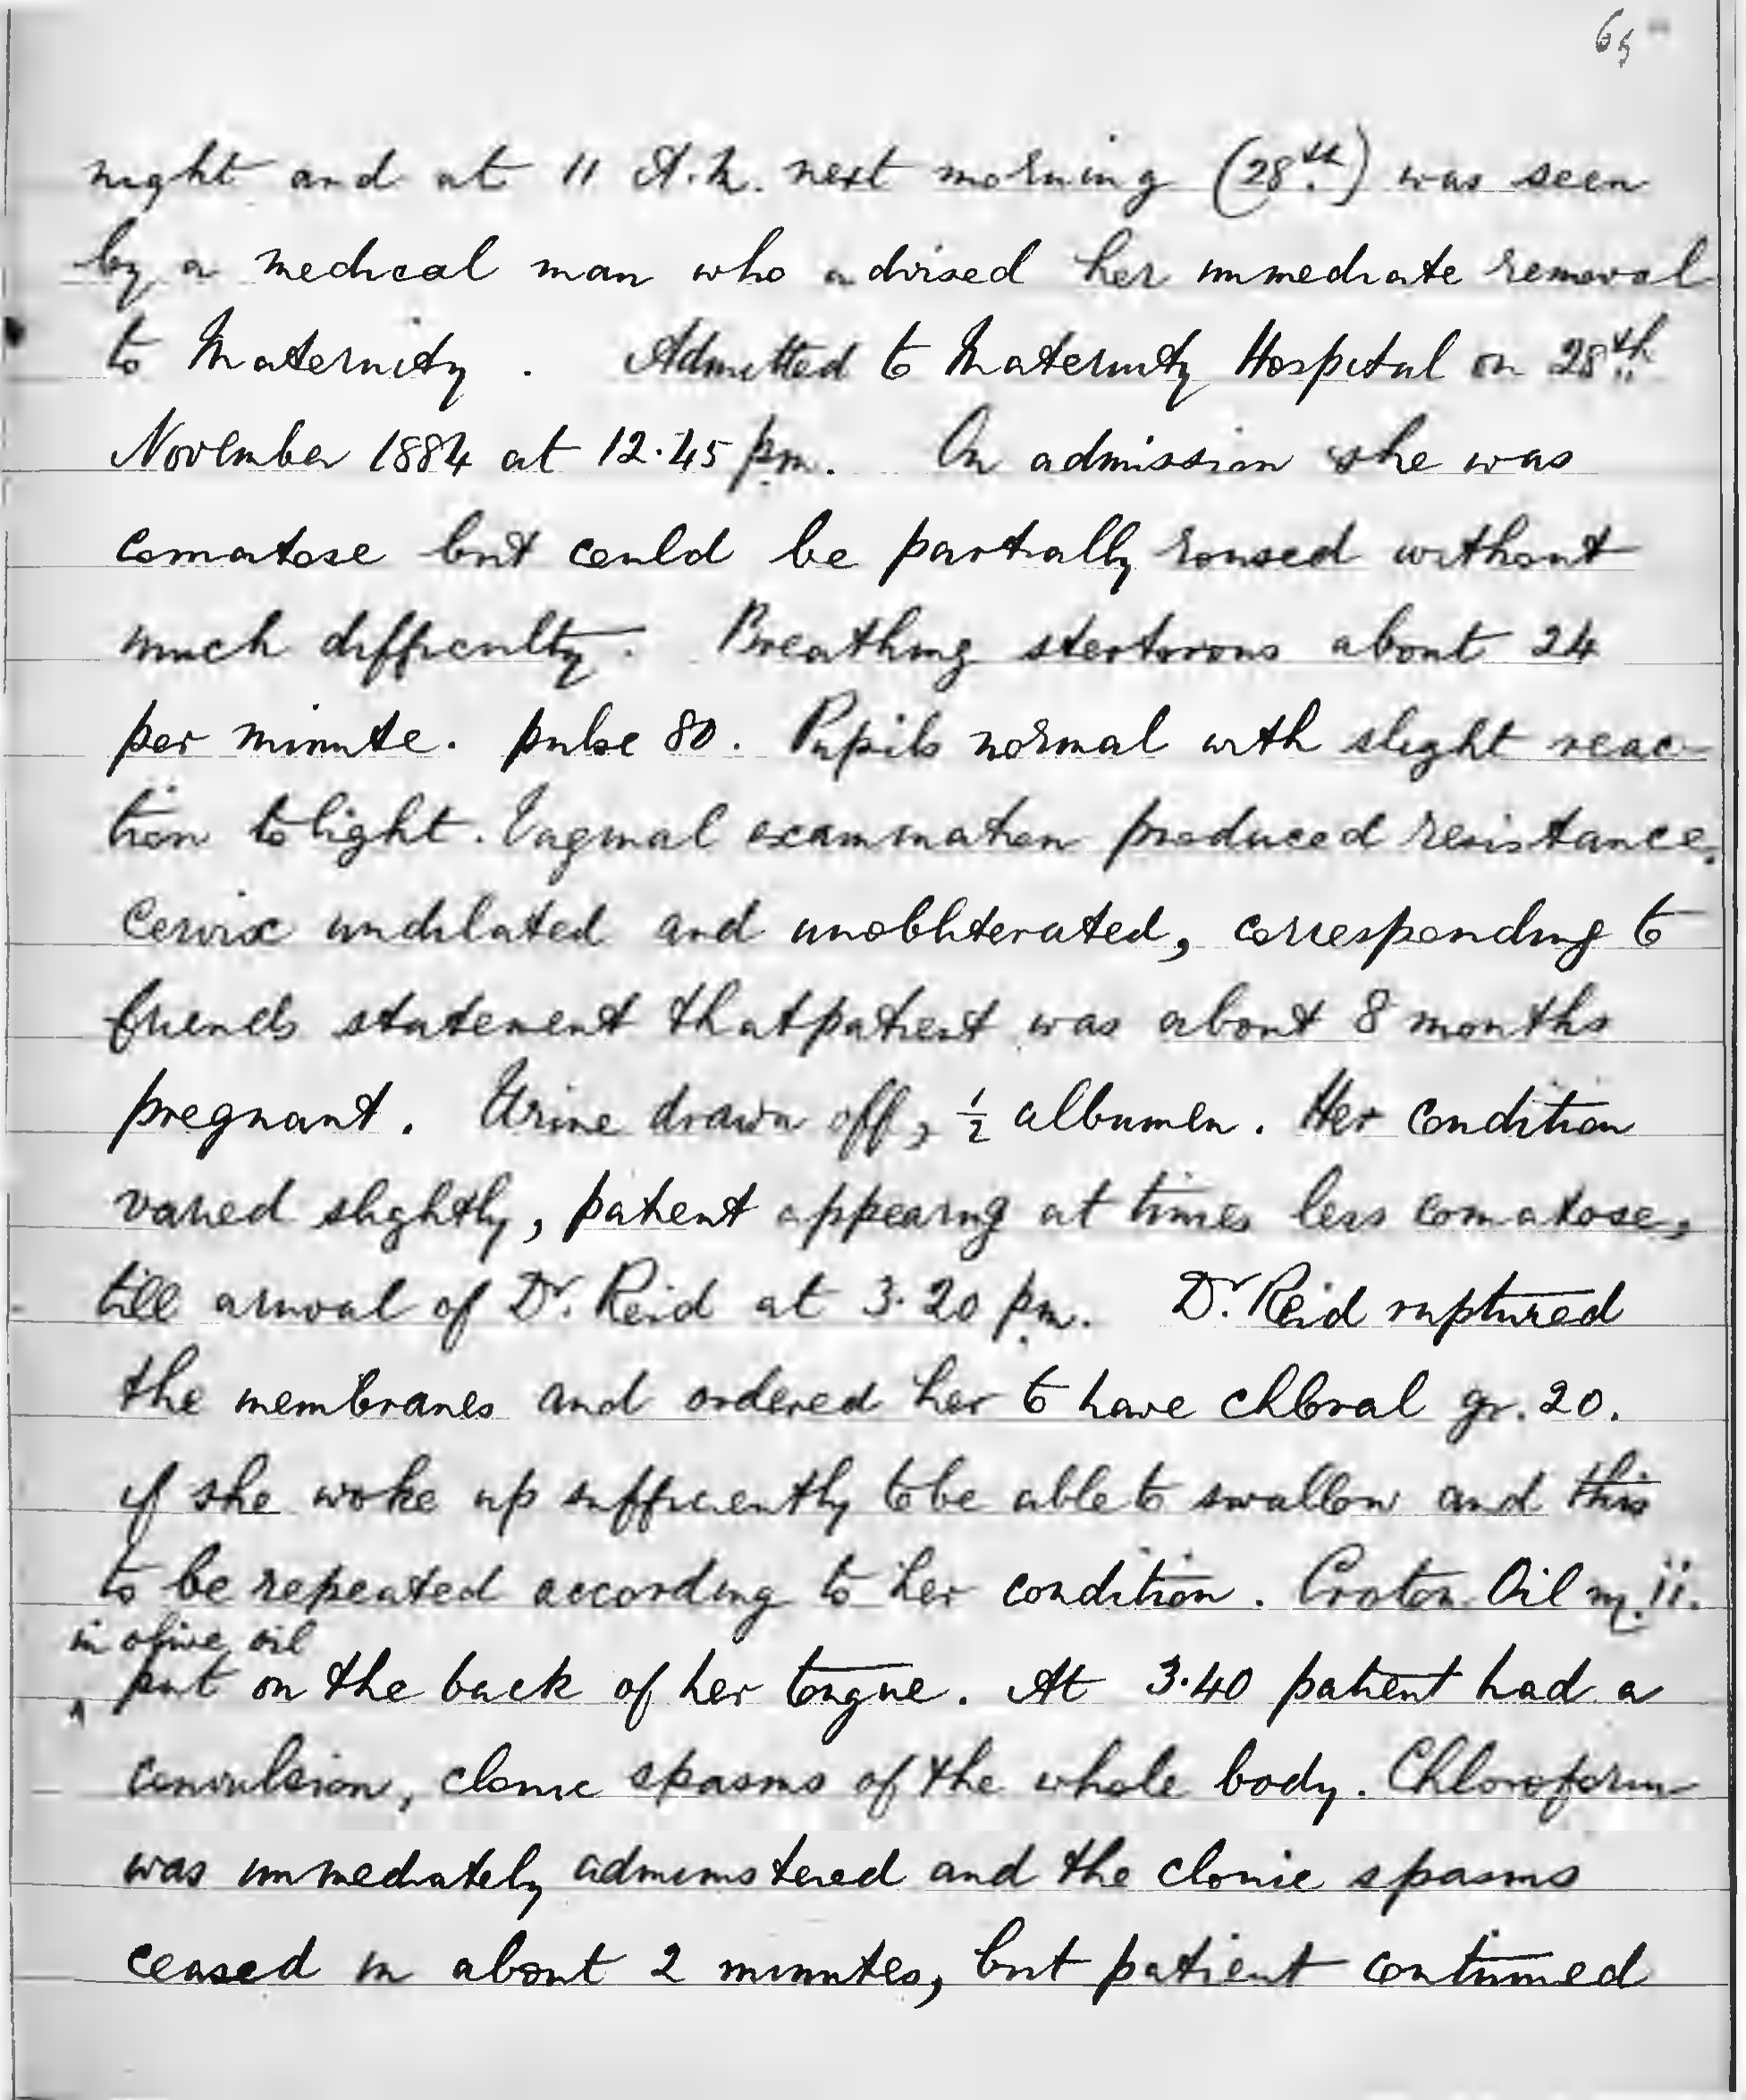 65
night and at 11 A.M. next morning (28th) was seen
by a medical man who advised her immediate removal
to Maternity. Admitted to Maternity Hospital on 28th
November 1884 at 12.45 pm. On admission she was
comatose but could be partially roused without
much difficulty. Breathing stertorous about 24
per minute. pulse 80. Pupils normal with slight reac-
tion to light. Vaginal examination produced resistance.
Cervix undilated and unobliterated, corresponding to
friends statement that patient was about 8 months
pregnant. Urine drawn off, ½ albumen. Her condition
varied slightly, patient appearing at times less comatose,
till arrival of Dr. Reid at 3.20 pm. Dr. Reid ruptured
the membranes and ordered her to have chloral gr. 20.
if she woke up sufficiently to be able to swallow and this
to be repeated according to her condition. Croton Oil m. ii.
in olive oil
‸ put on the back of her tongue. At 3.40 patient had a
convulsion, clonic spasms of the whole body. Chloroform
was immediately administered and the clonic spasms
ceased in about 2 minutes, but patient continued